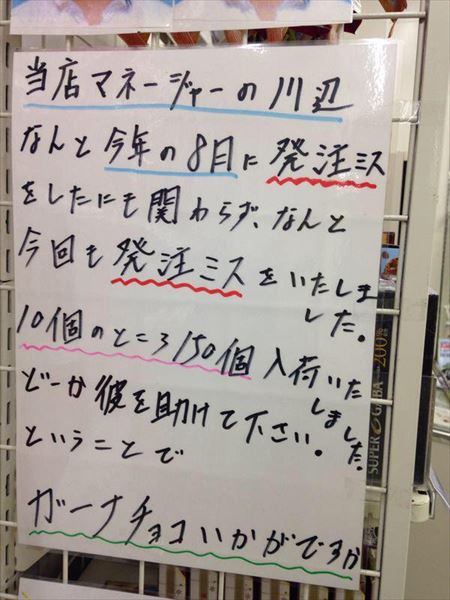 当店マネージャーの川辺
なんと今年の8月に発注ミス
をしたにも関わらず、なんと
今回も発注ミスをいたしました。
10個のところ150個入荷いたしました。
どーか彼を助けて下さい。
ということで
ガーナチョコいかがですか
SUPER GABA 200%